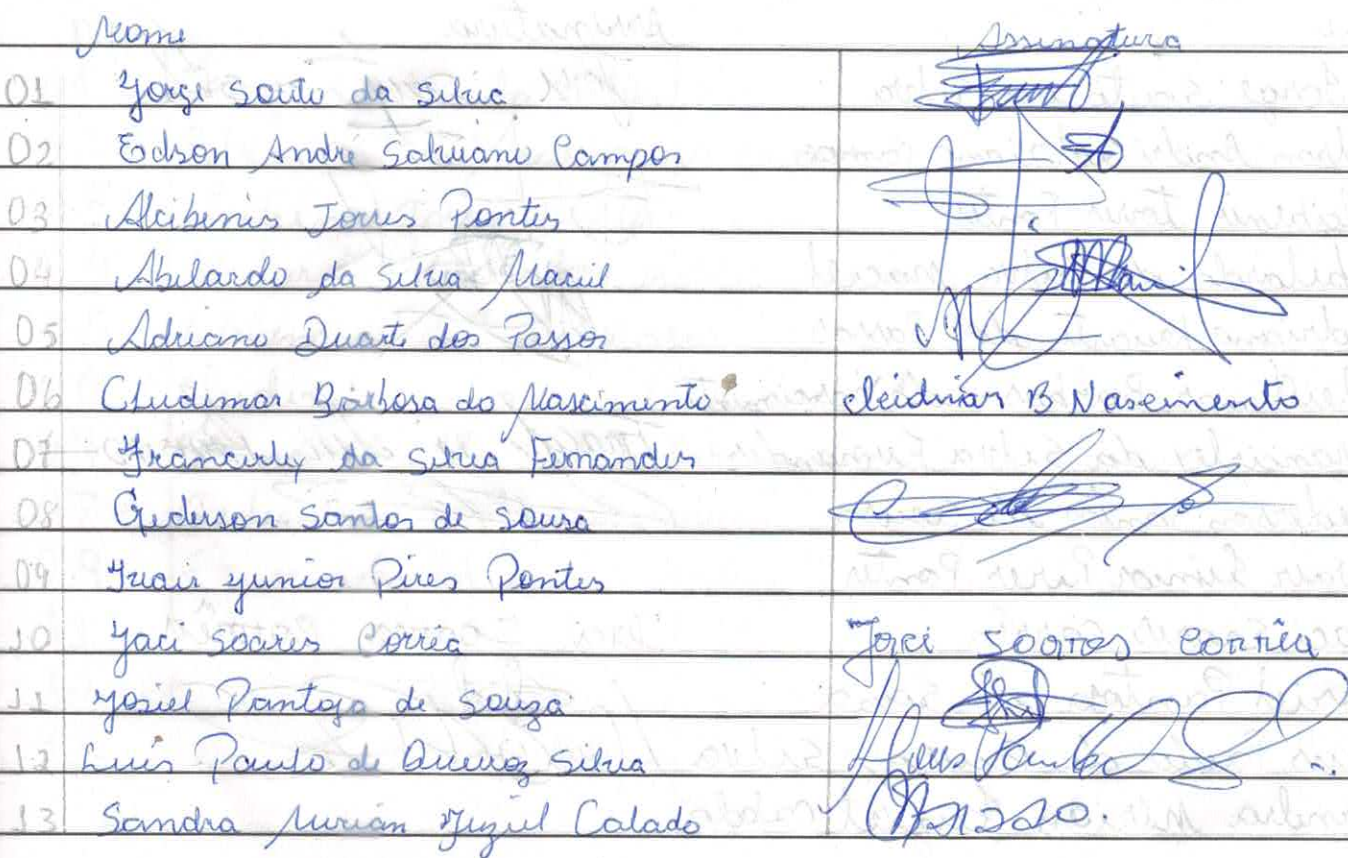 Nome Assinatura
01 Jorge Souto da Silva
02 Edson André Salviano Campos
03 Alcibenis Torres Pontes
04 Abelardo da Silva Maciel
05 Adriano Duarte dos Passos
06 Cludimar Barbosa do Nascimento Cleidmar B Nascimento
07 Francirley da Silva Fernandes
08 Gederson Santos de Sousa
09 Ivair Junior Pires Pontes
10 Jaci Soares Corrêa Jaci Soares Corrêa
11 Josiel Pantoja de Souza
12 Luis Paulo de Queiroz Silva
13 Sandra Mirian Calado